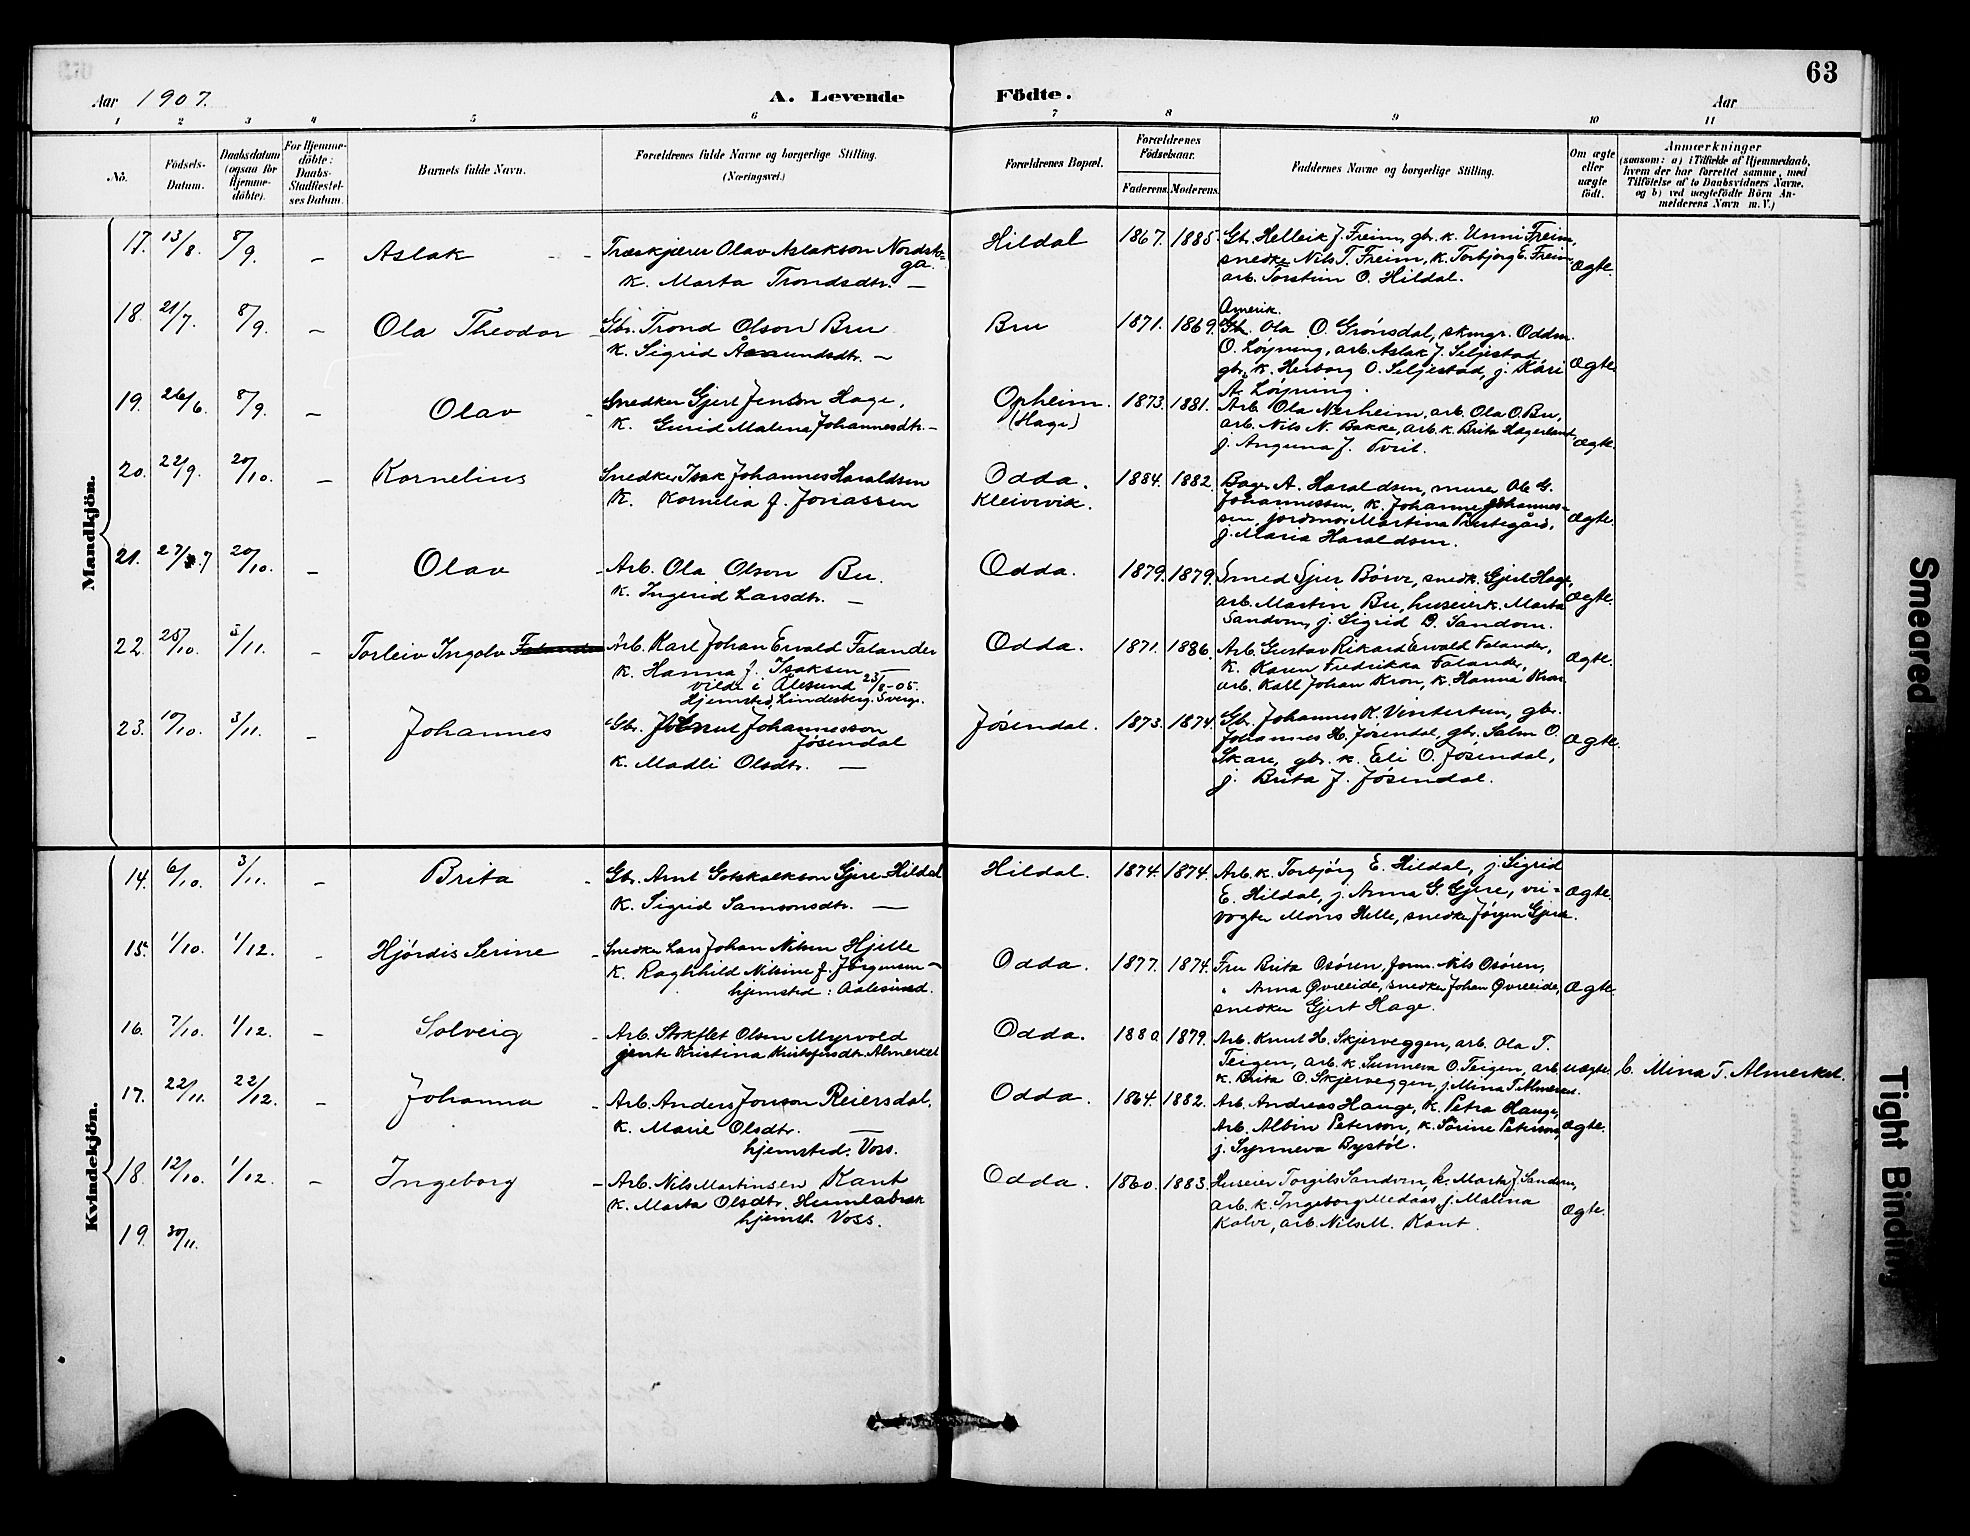 63
Aar 1907. A. Levende Födte. Aar
1 2 3 4 5 6 7 8 9 10 11
No.
Födsels-
Datum.
Daabsdatum
(ogsaa for
Hjemme-
döbte).
For Hjemme-
döbte:
Daabs-
Stadfæstel-
ses Datum.
Barnets fulde Navn.
Forældrenes fulde Navne og borgerlige Stilling.
(Næringsvei.)
Forældrenes Bopæl.
Forældrenes
Födselsaar.
Faderens. Moderens.
Faddernes Navne og borgerlige Stilling.
Om ægte
eller
uægte
födt.
Anmærkninger
(saasom: a) i Tilfælde af Hjemmedaab,
hvem der har forrettet samme, med
Tilföielse af to Daabsvidners Navne,
og b) ved uægtefödte Börn An-
melderens Navn m. V.)
Mandkjön.
17. 13/8. 8/9. – Aslak
Træskjærer Olav Aslakson Nordsto-
ga.
K. Marta Trondsdtr. —
Hildal 1867. 1885.
Gbr. Helleik J. Freim, gbr. k. Unni Freim,
snedker Nils T. Freim, k. Torbjørg E. Freim,
arb. Torstein O. Hildal.
Ægte.
18. 21/7. 8/9. – Ola Theodor –
Gbr. Trond Olson Bru
K. Sigrid Åsmundsdtr. —
Bru 1871. 1869.
Amerik.
Ola O. Grønsdal, skmgr. Oddm.
O. Løyning, arb. Aslak J. Seljestad,
gbr. k. Herborg O. Seljestad, j. Kari
A. Løyning.
Ægte.
19. 26/6. 8/9. – Olav –
Snedker Gjert Jenson Hage,
K. Gurid Malena Johannesdtr. –
Opheim.
(Hage)
1873. 1881.
Arb. Ola Nerheim, arb. Ola O. Bu,
arb. Nils N. Bakke, arb. k. Brita Hagerland,
j. Anguna J. Tveit.
Ægte.
20. 22/9. 20/10. – Kornelius
Snedker Isak Johannes Haraldsen
K. Kornelia f. Jonassen
Odda.
Kleivevik.
1884. 1882.
Bager A. Haraldsen, murer Ole G.
Johannessen, k. Johanne Johannes-
sen, jordmor Martina Prestegård,
j. Maria Haraldsen.
Ægte.
21. 20/10. – Olav
– Arb. Ola Olson Bu.
K. Ingerid Larsdtr. —
Odda. 1879. 1879.
Smed Sjur Børve, snedk. Gjert Hage,
arb. Martin Bu, huseierk. Marta
Sandven, j. Sigrid Sandven.
Ægte.
22. 25/10. 3/11. – Torleiv Ingolv Falander
Arb. Karl Johan Ervald Falander
K. Hanna f. Isaksen —
viede i Ålesund 23/8-05.
Hjemsted, Lindesberg, Sverge
Odda. 1871. 1886.
Arb. Gustav Rikard Ervald Falander,
K. Karen Fredrikka Falander,
arb. Karl Johan Kron, k. Hanna Kron
Ægte.
23. 10/10. 3/11. – Johannes
Gbr. Knut Johannesson
Jøsendal
K. Madli Olsdtr. —
Jøsendal. 1873. 1874.
Gbr. Johannes K. Vintertun, gbr.
Johannes H. Jøsendal, gbr. Salm. O.
Skare, gbr. k. Eli O. Jøsendal,
j. Brita J. Jøsendal.
Ægte.
Kvindekjön.
14. 6/10. 3/11. – Brita –
Gbr. Arnt Gotskalkson Gjere-Hildal
K. Sigrid Samsonsdtr. —
Hildal. 1874. 1874.
Arb. k. Torbjörg E. Hildal, j. Sigrid
E. Hildal, j. Anna G. Gjere, vei-
vogter Mons Helle, snedker Jørgen Gjere.
Ægte.
15. 1/10. 1/12. – Hjørdis Serine –
Snedker Lars Johan Nilsen Hjelle
K. Raghhild Nilsine f. Jørgensen –
hjemsted: Aalesund.
Odda. 1877. 1874.
Fru Brita Osøren, form. Nils Osøren,
" Anna Øvreeide, snedker Johan Øvreeide,
snedker Gjert Hage.
Ægte.
16. 7/10. 1/12. – Solveig
– Arb. Stokflet Olsen Myrvold
gjente Kristina Almerket
Odda. 1880. 1879.
Arb. Knut H. Skjerveggen, arb. Ola T.
Teigen, arb. k. Sunneva O. Teigen, arb.
k. Brita O. Skjerveggen, j. Mina T. Almerket.
uægte b. Mina T. Almerket.
17. 22/11. 22/12. – Johanna
– Arb. Anders Jonson Reiersdal.
K. Marie Olsdtr. —
hjemsted: Voss.
Odda. 1864. 1882.
Arb. Andreas Hauge, k. Petra Hauge,
Arb. Albin Peterson, k. Sørine Peterson,
j. Synneva Bystøl.
Ægte.
18. 12/10. 1/12. – Ingeborg
– Arb. Nils Martinsen Kant
K. Marta Olsdtr. Humlabrek
hjemst. Voss.
Odda. 1860. 1883.
Huseier Torgils Sandven, k. Marta J. Sandven,
arb. k. Ingeborg Medaas, j. Malena
Kalve, arb. Nils M. Kant.
Ægte.
19. 30/11.
Smeared
Tight Binding